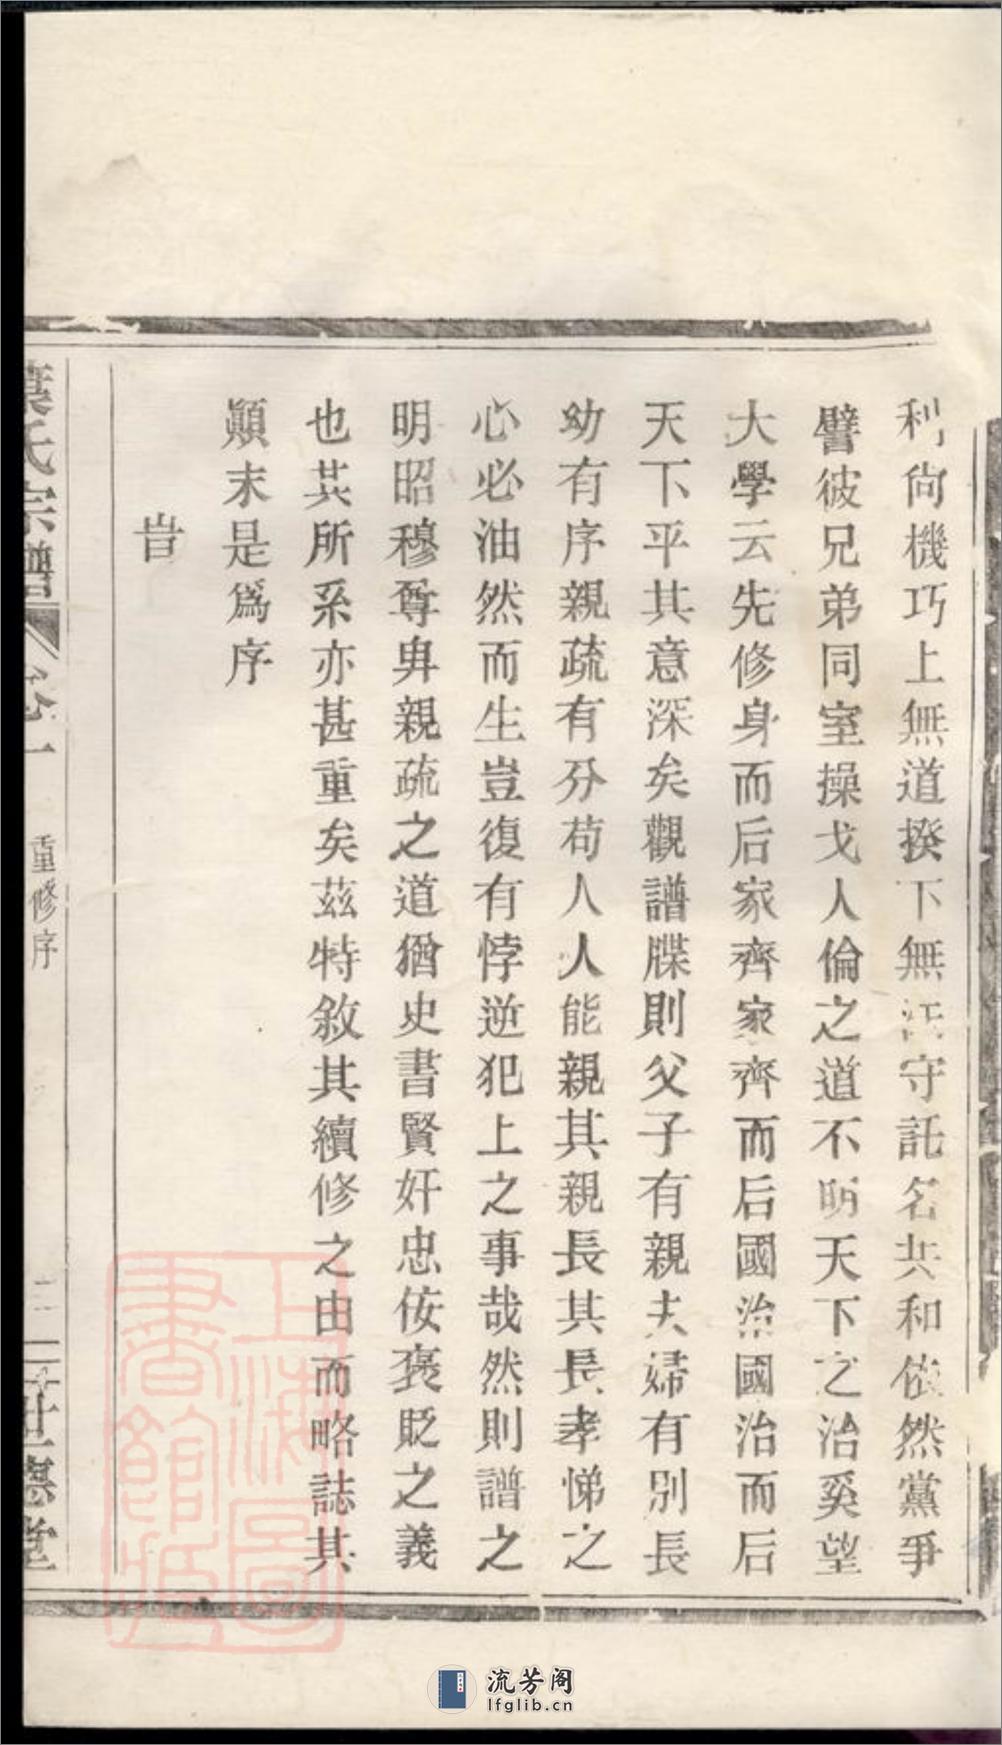 利尙機巧上無道揆下無法守託名共和依然黨爭
譬彼兄弟同室操戈人倫之道不明天下之治奚望
大學云先修身而后家齊家齊而后國治國治而后
天下平其意深矣觀譜牒則父子有親夫婦有別長
幼有序親疏有分苟人人能親其親長其長孝悌之
心必油然而生豈復有悖逆犯上之事哉然則譜之
明昭穆尊卑親疏之道猶史書賢奸忠佞褒貶之義
也其所系亦甚重矣茲特敘其續修之由而略誌其
顚末是爲序
旹
葉氏宗譜
卷一
重修序
二
世德堂
上海圖書館藏
流芳阁
lfglib.cn